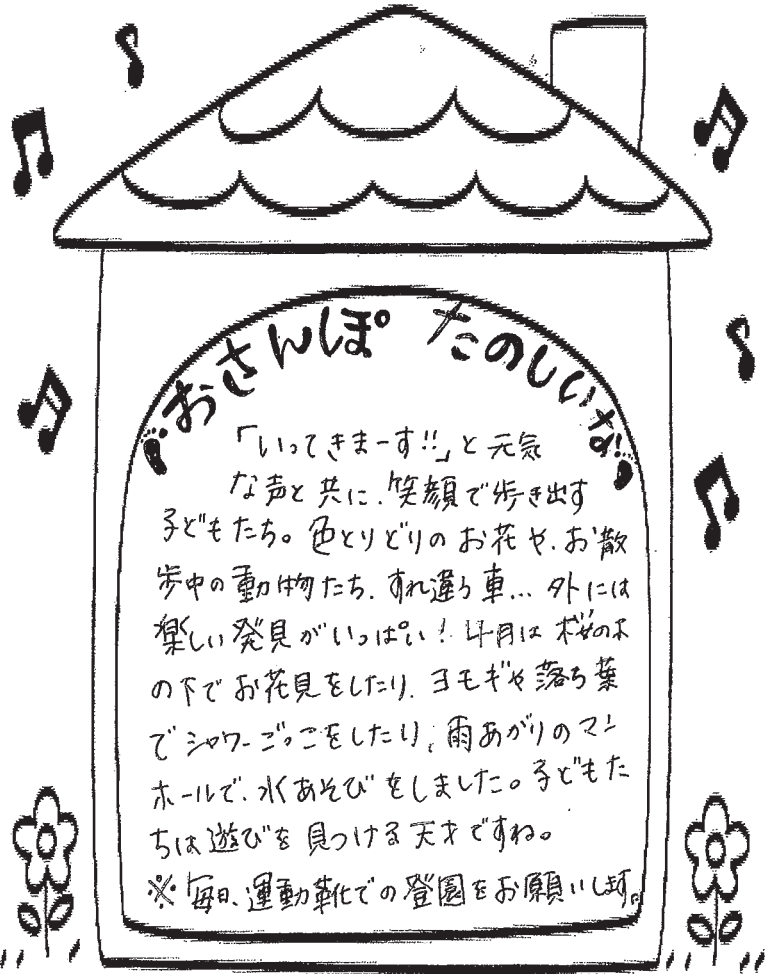 おさんぽ たのしいな!!
「いってきまーす!!」と元気
な声と共に、笑顔で歩き出す
子どもたち。色とりどりのお花や、お散
歩中の動物たち、すれ違う車…外には
楽しい発見がいっぱい！4月は桜の木
の下でお花見をしたり、ヨモギや落ち葉
でシャワーごっこをしたり、雨あがりのマン
ホールで、水あそびをしました。子どもた
ちは遊びを見つける天才ですね。
※毎日、運動靴での登園をお願いします。